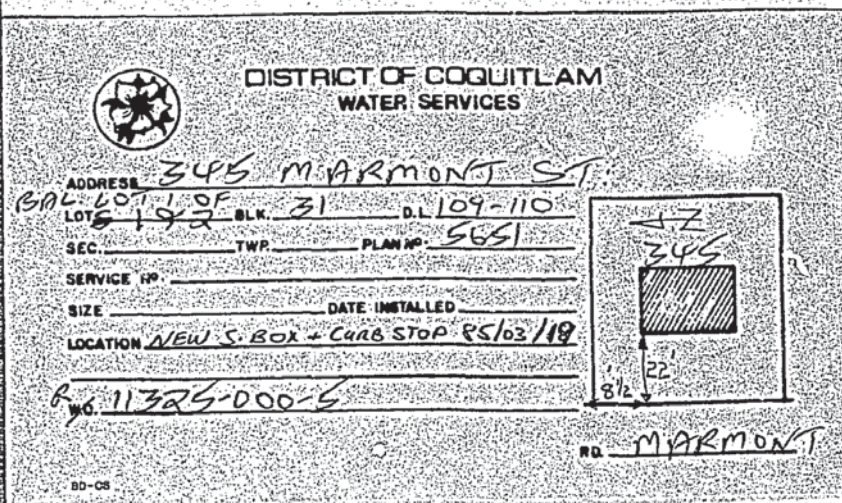 DISTRICT OF COQUITLAM
WATER SERVICES
ADDRESS 345 MARMONT ST.
BAL LOT 1 OF
LOT S 1 & 2 BLK. 31 D.L. 109-110
SEC. TWP. PLAN Nº. 5651
SERVICE Nº.
SIZE DATE INSTALLED
LOCATION NEW S. BOX + CURB STOP 85/03/19
W.O. 11325-000-5
N
345
22'
8½'
RD. MARMONT
BD-CS